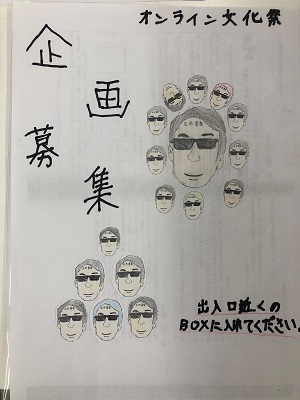 オンライン文化祭
企画募集
出入口近くの
BOXに入れてください。